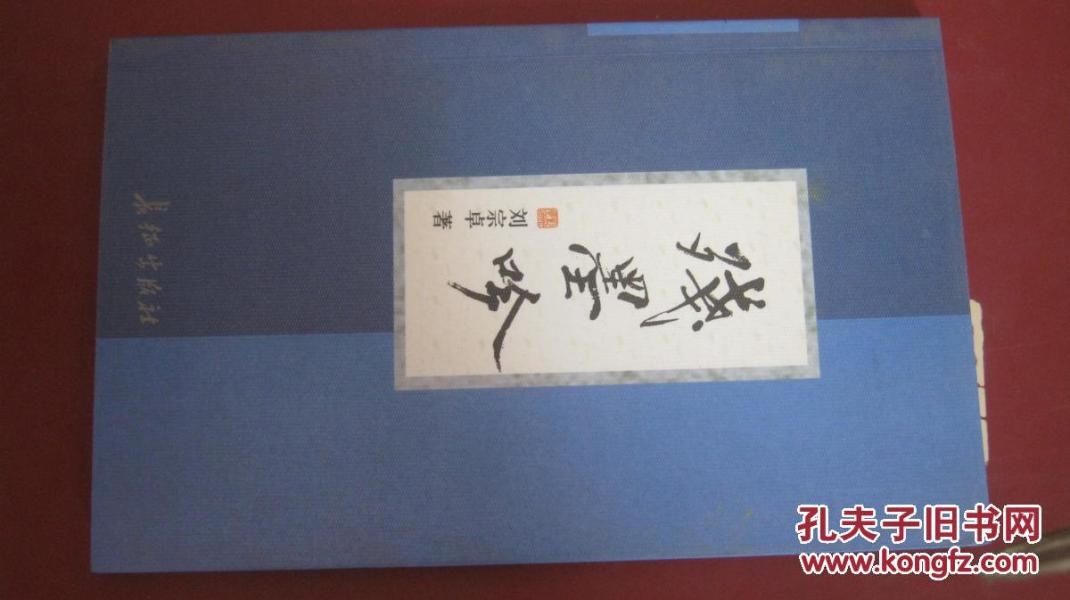 残墨吟
刘宗卓 著
长征出版社
孔夫子旧书网
www.kongfz.com